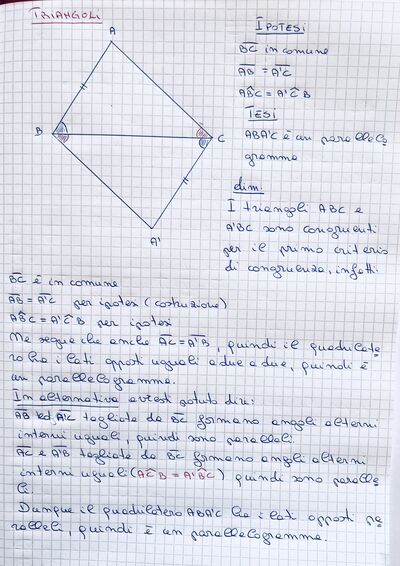 TRIANGOLI
IPOTESI
BC in comune
AB = A'C
ABC = A'CB
TESI
ABA'C è un paralle̲lo̲
gramma
dim.
I triangoli ABC e
A'BC sono congruenti
per il primo criterio
di congruenza, infatti:
A
B
C
A'
BC è in comune
AB = A'C per ipotesi (costruzione)
ABC = A'CB per ipotesi
Ne segue che anche AC = A'B, quindi il quadrilate
ro ha i lati opposti uguali a due a due, quindi è
un parallelogramma.
In alternativa avresti potuto dire:
AB ed A'C tagliate da BC formano angoli alterni
interni uguali, quindi sono paralleli.
AC e A'B tagliate da BC formano angoli alterni
interni uguali (ACB = A'BC) quindi sono paralle
li.
Dunque il quadrilatero ABA'C ha i lati opposti pa
ralleli, quindi è un parallelogramma.